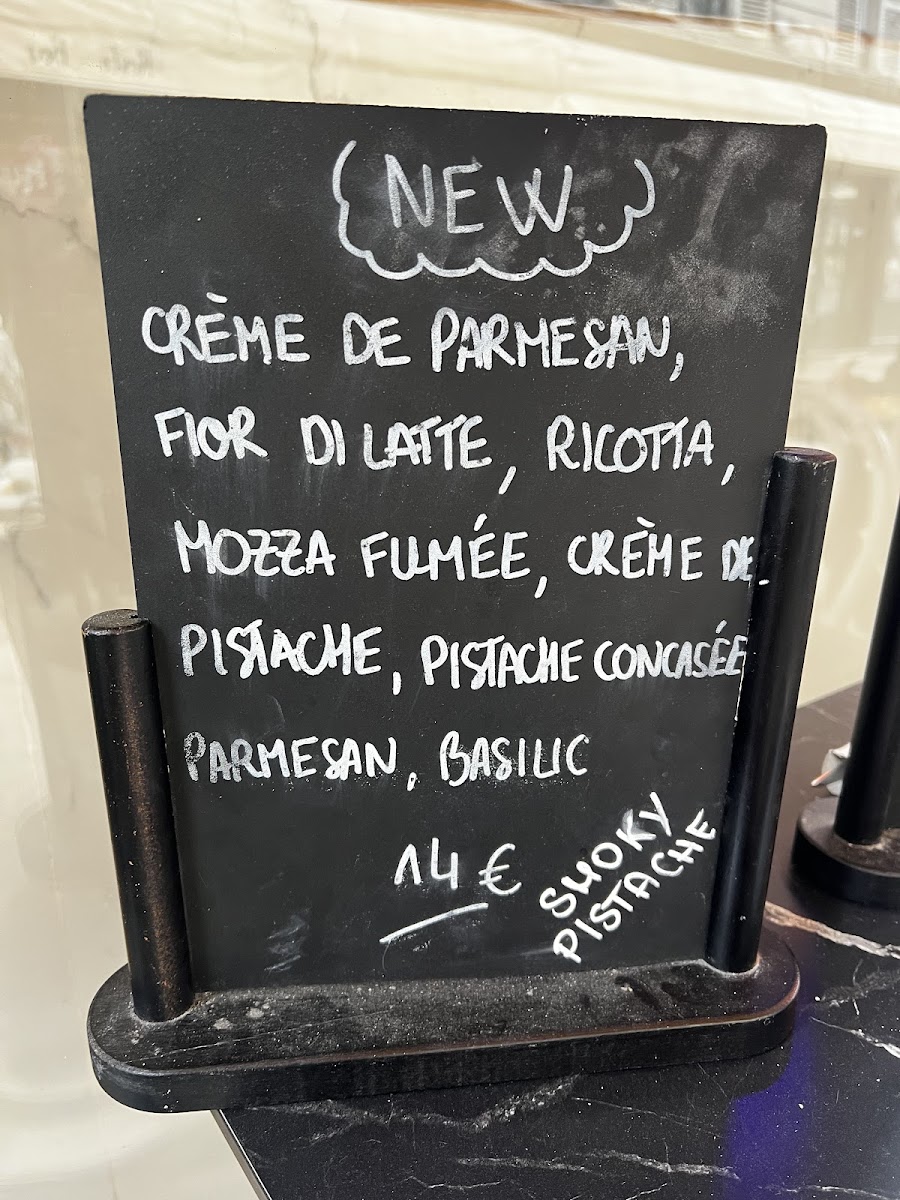 NEW
CRÈME DE PARMESAN,
FIOR DI LATTE, RICOTTA,
MOZZA FUMÉE, CRÈME DE
PISTACHE, PISTACHE CONCASÉE
PARMESAN, BASILIC
14 €
SMOKY
PISTACHE